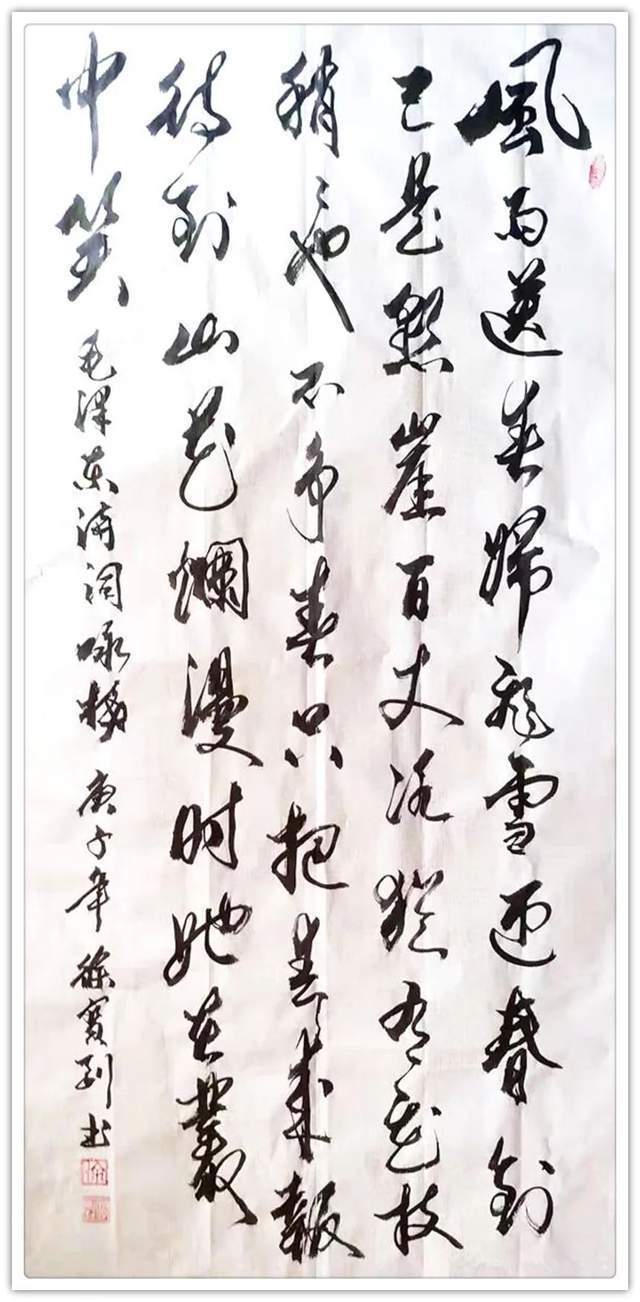 風雨送春歸飛雪迎春到
已是懸崖百丈冰猶有花枝
俏〻也不争春只把春來報
待到山花爛漫时她在叢
中笑 毛澤东诗词咏梅 庚子年 徐寶列书